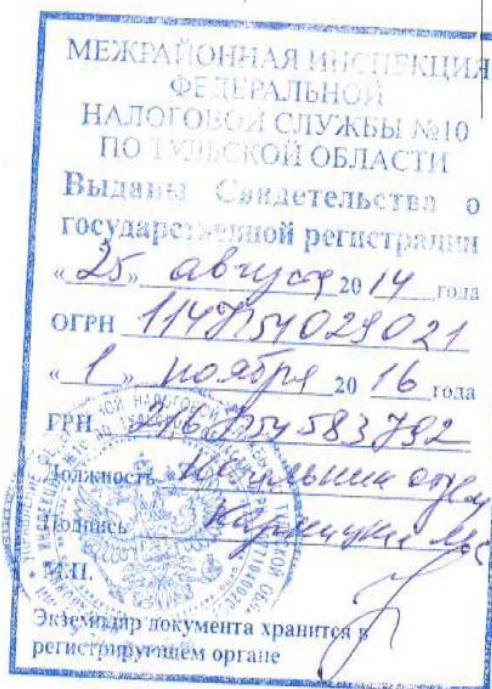 МЕЖРАЙОННАЯ ИНСПЕКЦИЯ
ФЕДЕРАЛЬНОЙ
НАЛОГОВОЙ СЛУЖБЫ №10
ПО ТУЛЬСКОЙ ОБЛАСТИ
Выданы Свидетельства о
государственной регистрации
«25» августа 2014 года
ОГРН 1147154029021
«1» ноября 2016 года
ГРН 2167154583792
Должность Начальник отдела
Подпись
М.П.
Экземпляр документа хранится в
регистрирующем органе